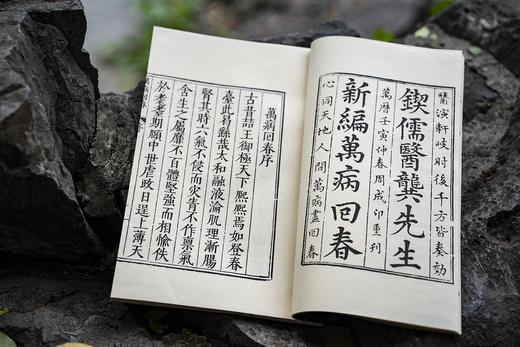 醫演軒岐肘後千方皆奏効
鍥儒醫龔先生
萬曆壬寅仲春周成印重刊
新編萬病回春
心同天地人間萬病盡回春
萬病回春序
古昔喆王御極天下熙熙焉如登春
臺此曷繇哉太和融液淪肌理漸腸
腎其時六氣不侵而灾眚不作稟氣
含生之屬靡不百體堅強而相愉佚
於耄耋期頤中世虐政日逞上薄天